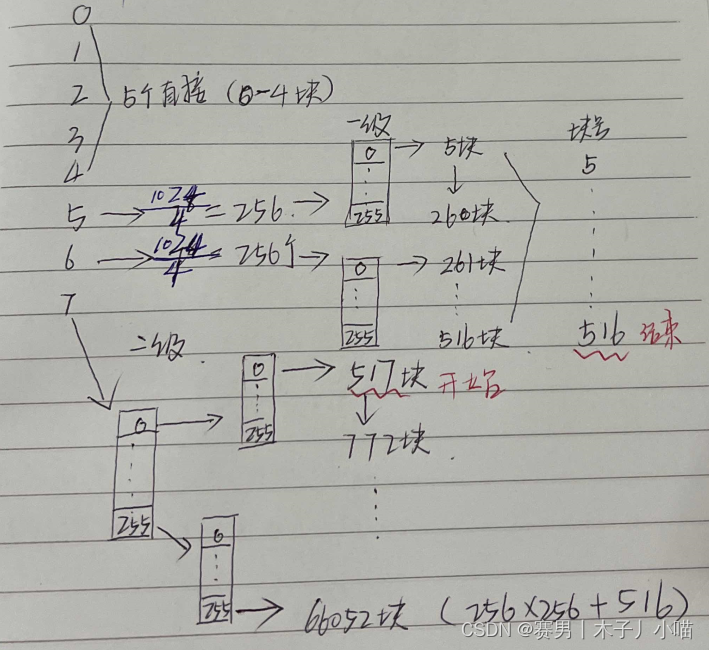 0
1
2 5个直接 (0-4块)
3
4
一级 块号
0 5块 5
255 260块
5 1024/4 = 256
6 1024/4 = 256个 0 261块
255 516块 516 结束
7
二级
0 517块 开始
255 772块
0
255
0
255 66052块 (256×256+516)
CSDN @赛男丨木子丿小喵